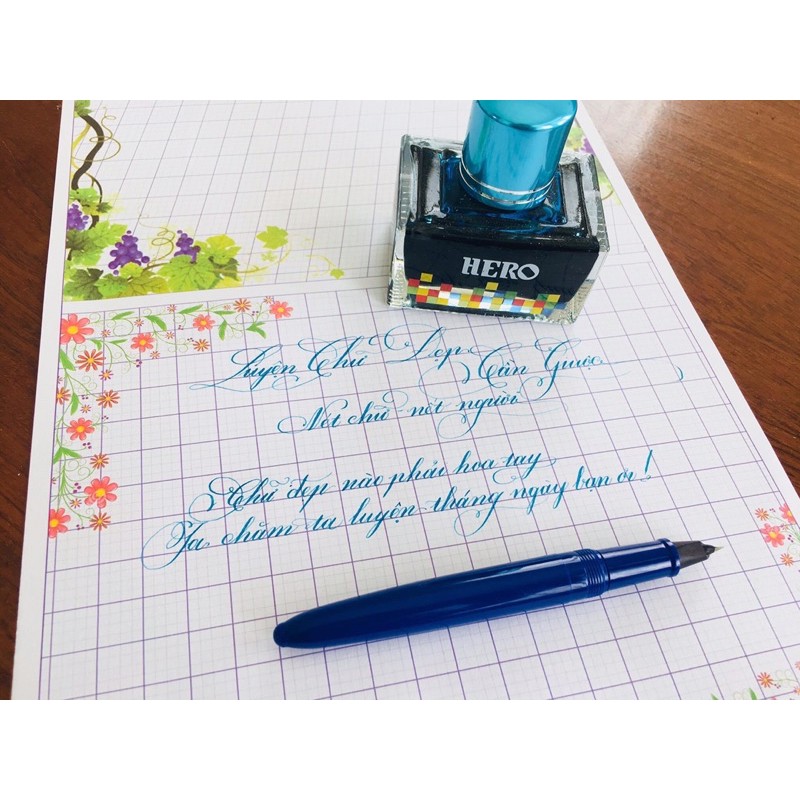 HERO
Luyện Chữ Đẹp Cần Giuộc
Nét chữ nết người
Chữ đẹp nào phải hoa tay
Ta chăm ta luyện tháng ngày bạn ơi!